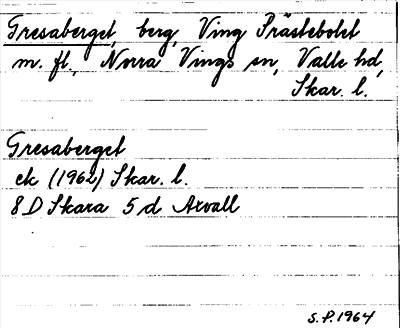 Gresaberget, berg, Ving Prästebolet
m. fl., Norra Vings sn, Valle hd,
Skar. l.
Gresaberget
ek (1962) Skar. l.
8 D Skara 5 d Axvall
S.P. 1964